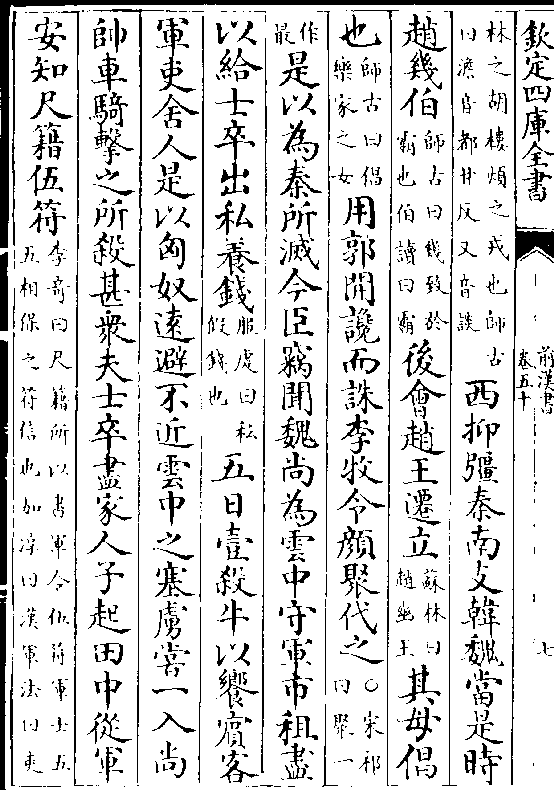 欽定四庫全書
前漢書
卷五十
七
林之胡樓煩之戎也師古
曰澹音都甘反又音談
西抑彊秦南支韓魏當是時
趙幾伯
師古曰幾致於
霸也伯讀曰霸
後會趙王遷立
蘇林曰
趙幽王
其母倡
也
師古曰倡
樂家之女
用郭開讒而誅李牧令顏聚代之
○宋祁
曰聚一
作
最
是以為秦所滅今臣竊聞魏尚為雲中守軍市租盡
以給士卒出私養錢
服虔曰私
假錢也
五日壹殺牛以饗賓客
軍吏舍人是以匈奴遠避不近雲中之塞虜嘗一入尚
帥車騎擊之所殺甚衆夫士卒盡家人子起田中從軍
安知尺籍伍符
李奇曰尺籍所以書軍令伍符軍士五
五相保之符信也如淳曰漢軍法曰吏